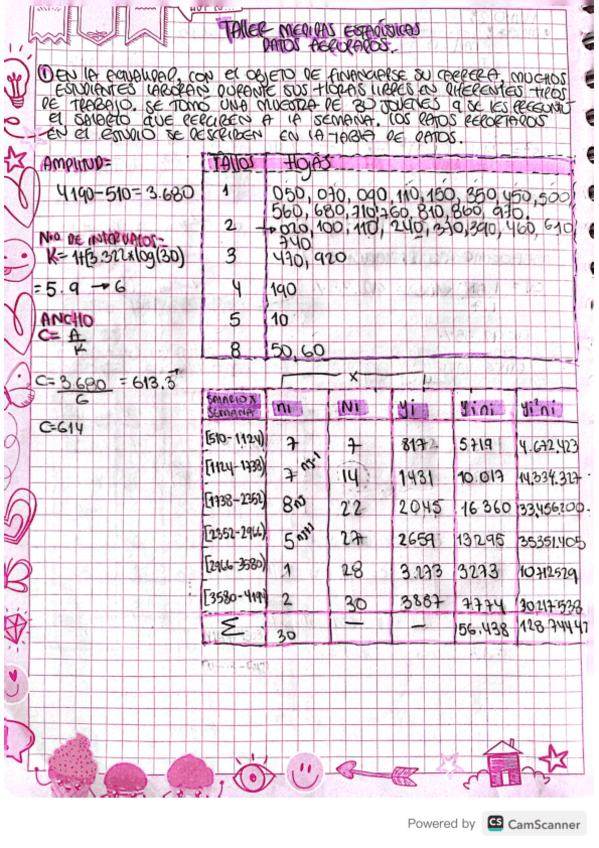 TALLER MEDIDAS ESTADÍSTICAS
DATOS AGRUPADOS.
① EN LA ACTUALIDAD, CON EL OBJETO DE FINANCIARSE SU CARRERA, MUCHOS
ESTUDIANTES LABORAN DURANTE SUS HORAS LIBRES EN DIFERENTES TIPOS
DE TRABAJO. SE TOMÓ UNA MUESTRA DE 30 JÓVENES Q SE LES PREGUNTÓ
EL SALARIO QUE PERCIBEN A LA SEMANA. LOS DATOS REPORTADOS
EN EL ESTUDIO SE DESCRIBEN EN LA TABLA DE DATOS.
AMPLITUD=
4190-510=3.680
Nro DE INTERVALOS=
K= 1+(3.322*log(30)
=5.9 → 6
ANCHO
C= A/K
C= 3.680/6 = 613.3
C=614
TALLOS HOJAS
1 050, 070, 090, 110, 150, 350, 450, 500,
560, 680, 710, 760, 810, 860, 970.
2 → 020, 100, 110, 240, 370, 390, 460, 610
740
3 470, 920
4 190
5 10
8 50, 60
x
SALARIO X SEMANA ni Ni yi yini yi²ni
[510-1124) 7 7 817 5719 4.672.423
[1124-1738) 7 nj-1 14 1431 10.017 14.334.327
[1738-2352) 8 nj 22 2045 16 360 33,456200.
[2352-2966) 5 nj+1 27 2659 13295 35351.405
[2966-3580) 1 28 3.273 3273 10712529
[3580-4194) 2 30 3887 7.774 30.217.538
Σ 30 — — 56.438 128.74442
Powered by CS CamScanner